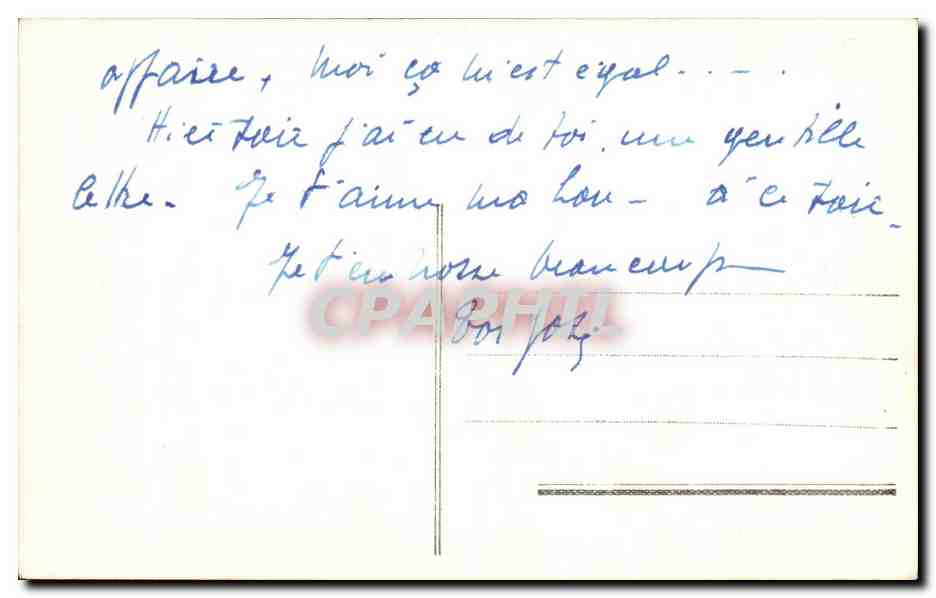 affaire, moi ça m'est égal.....
Hier soir j'ai eu de toi, une gentille
lettre. Je t'aime ma Lou - à ce soir -
Je t'embrasse beaucoup
CPAPHIL